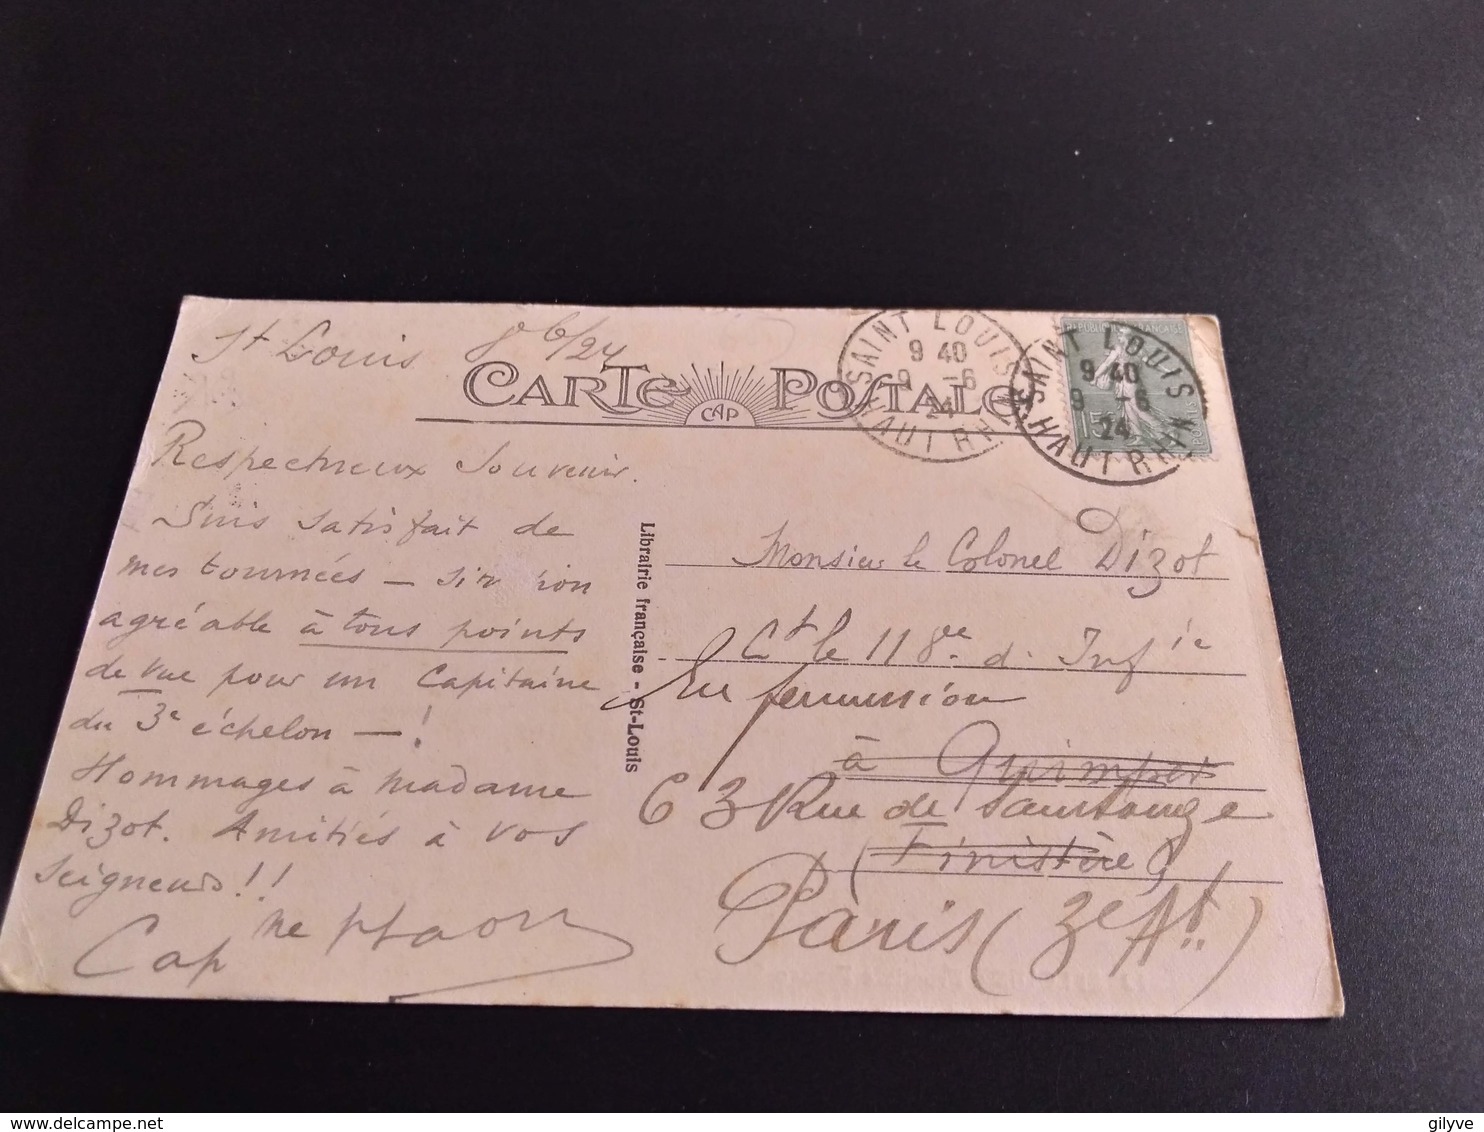 St Louis 8 6/24
CARTE POSTALE
CAP
SAINT LOUIS
9 40
9 -6
24
HAUT RHIN
SAINT LOUIS
9 40
9 -6
24
HAUT RHIN
REPUBLIQUE FRANÇAISE
15
POSTES
Respectueux Souvenir.
Suis satisfait de
mes tournées —
agréable à tous points
de vue pour un Capitaine
du 3e échelon — !
Hommages à Madame
Dizot. Amitiés à vos
seigneurs!!
Cap
Librairie française - St-Louis
Monsieur le Colonel Dizot
Ct le 118e d'Infie
En permission
à Quimper
63 Rue de Saintonge
(Finistère)
Paris (3e Att)
www.delcampe.net
gilyve